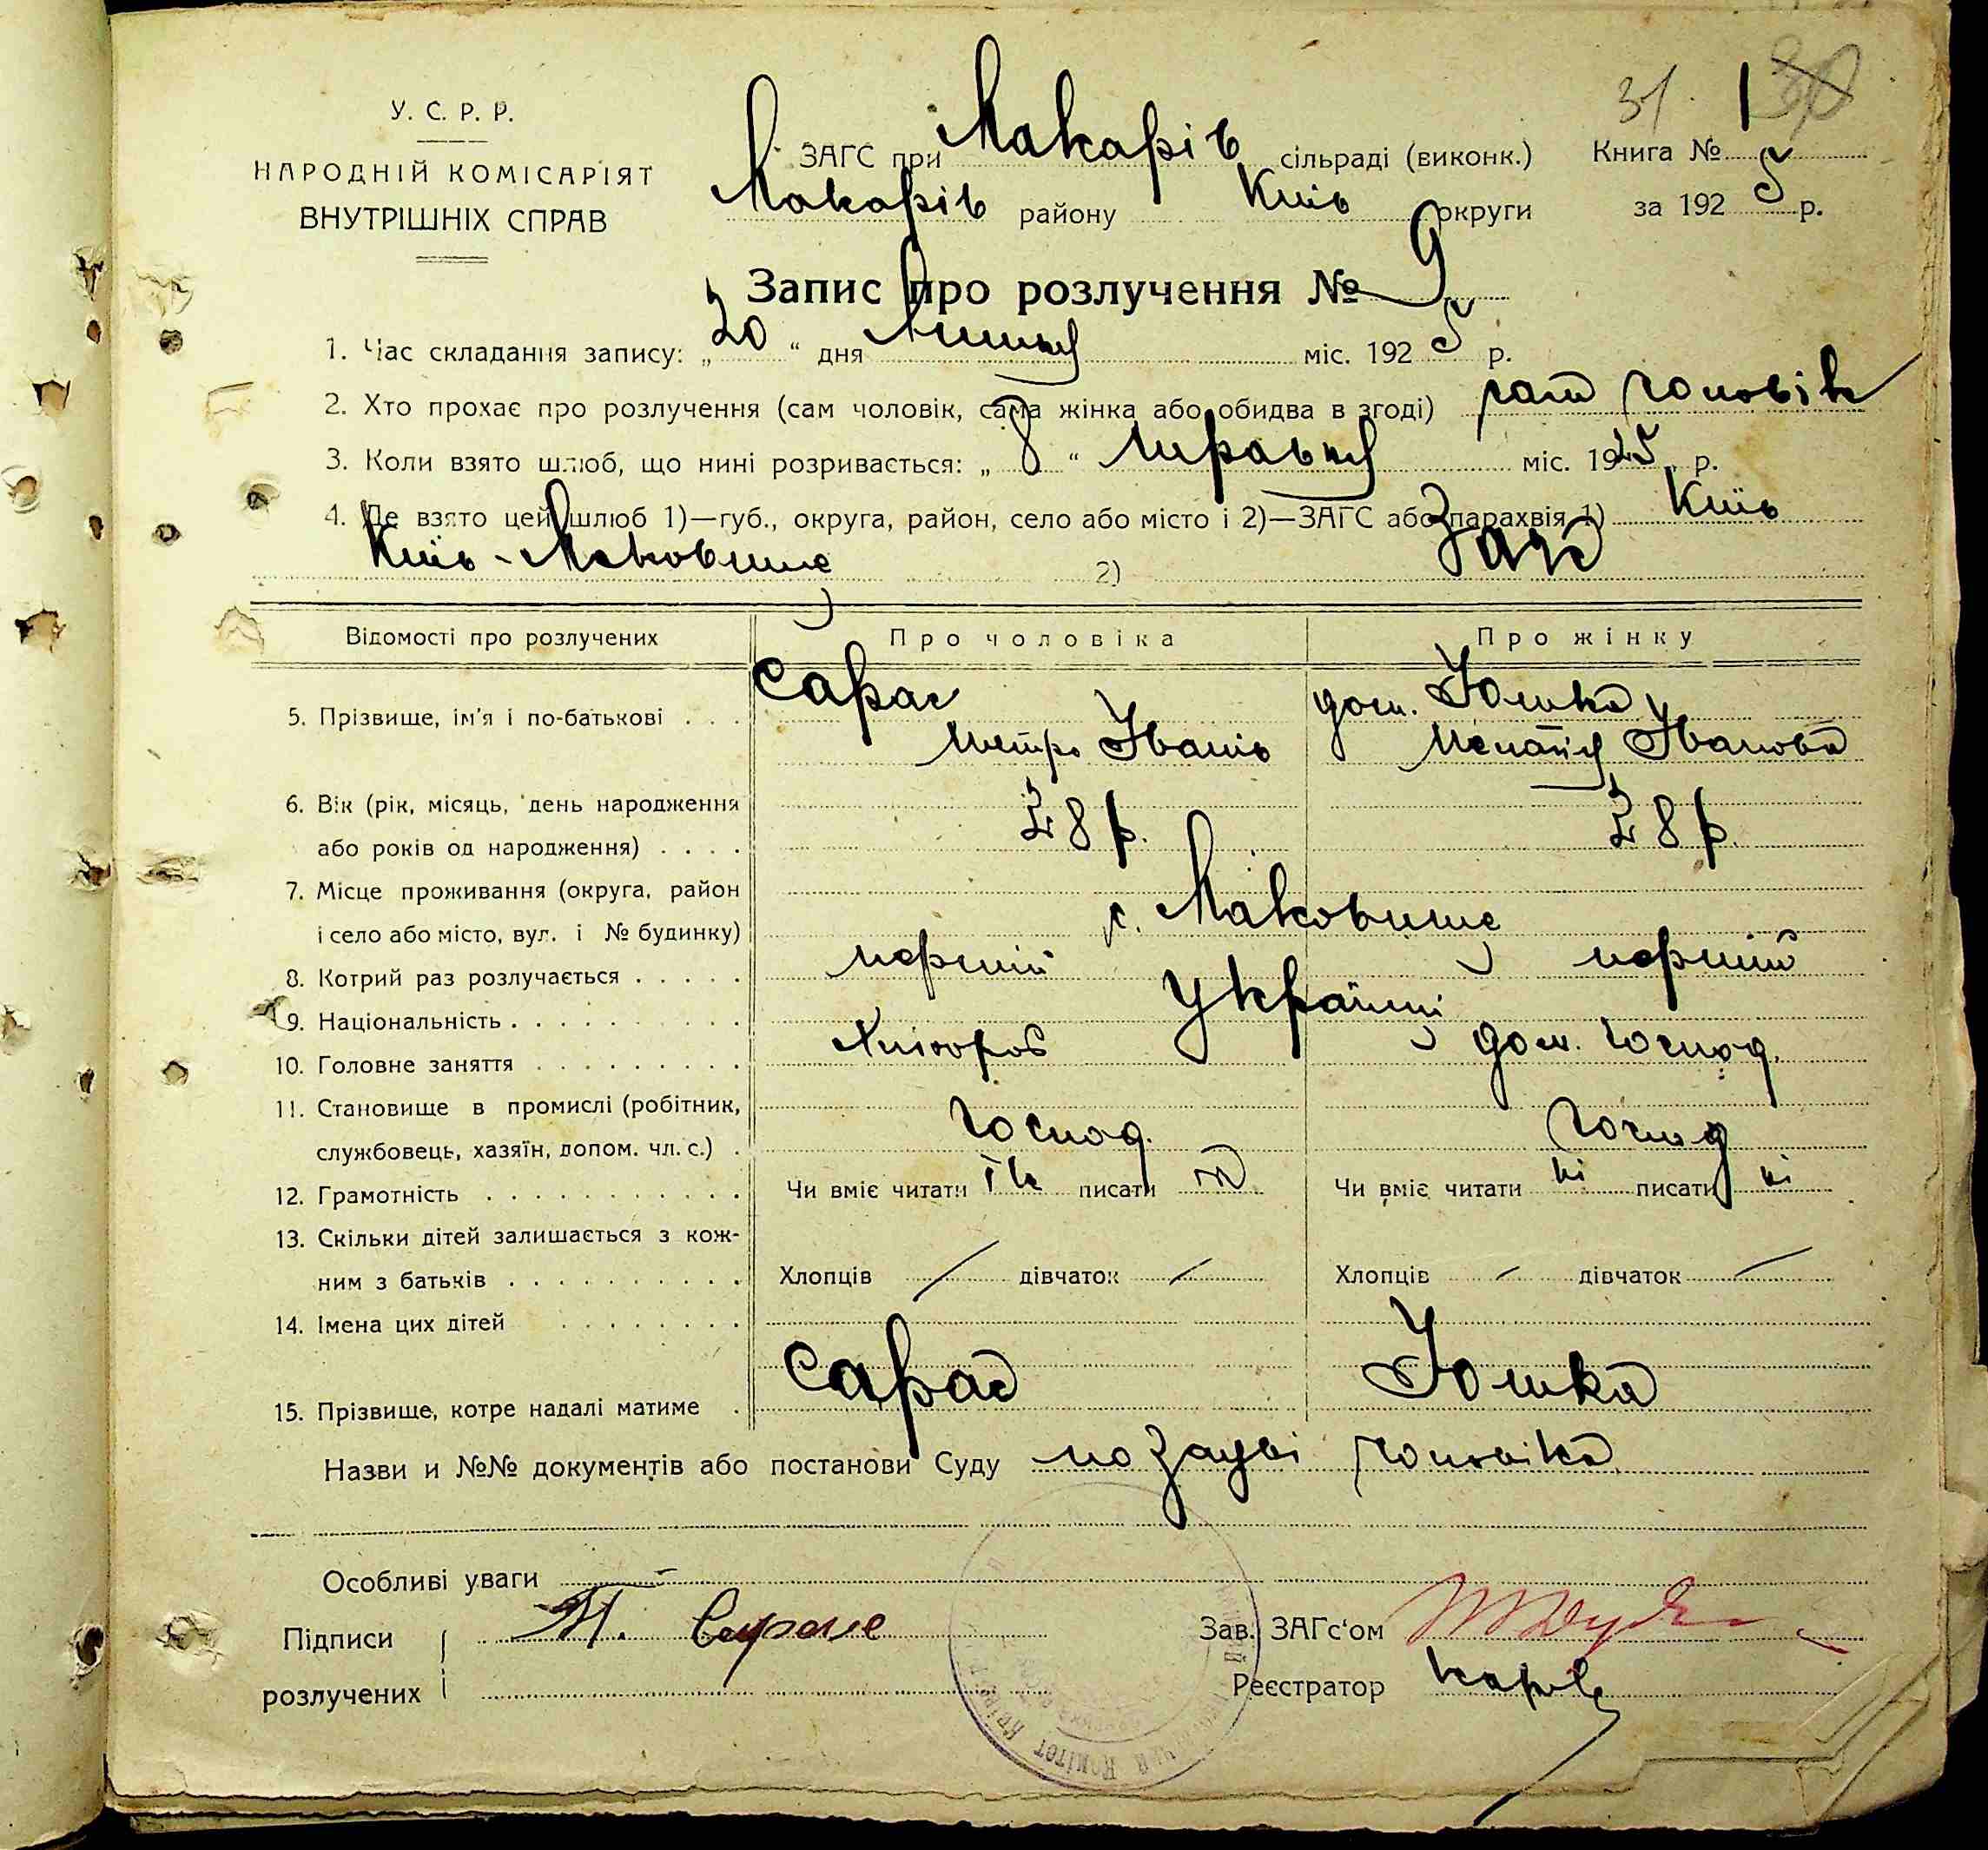 31. 30
У. С. Р. Р.
НАРОДНІЙ КОМІСАРІЯТ
ВНУТРІШНІХ СПРАВ
ЗАГС при Макарів сільраді (виконк.) Книга № 1
Макарів району Київ округи за 1925 р.
Запис про розлучення № 9
1. Час складання запису: „20“ дня Липця міс. 1925 р.
2. Хто прохає про розлучення (сам чоловік, сама жінка або обидва в згоді) сам чоловік
3. Коли взято шлюб, що нині розривається: „8“ міс. 1925 р.
4. Де взято цей шлюб 1)—губ., округа, район, село або місто і 2)—ЗАГС або парахвія 1) Київ
Київ - Маковище 2) Загс
Відомості про розлучених Про чоловіка Про жінку
5. Прізвище, ім'я і по-батькові . . . Сарас дош. Юшка
Петро Іванів Іванова
6. Вік (рік, місяць, день народження 28 р. 28 р.
або років од народження) . . . .
7. Місце проживання (округа, район
і село або місто, вул. і № будинку) с. Маковище
8. Котрий раз розлучається . . . . . перший перший
9. Національність . . . . . . . . . . Українці
10. Головне заняття . . . . . . . . . Хлібороб дом. господ.
11. Становище в промислі (робітник, господ. господ
службовець, хазяїн, допом. чл. с.) .
12. Грамотність . . . . . . . . . . . Чи вміє читати писати Чи вміє читати ні писати ні
13. Скільки дітей залишається з кож-
ним з батьків . . . . . . . . . . Хлопців / дівчаток / Хлопців / дівчаток /
14. Імена цих дітей . . . . . . . .
15. Прізвище, котре надалі матиме . Сарас Юшка
Назви и №№ документів або постанови Суду по заяві чоловіка
Особливі уваги –
Підписи П. Сарас Зав. ЗАГс'ом
розлучених Реєстратор